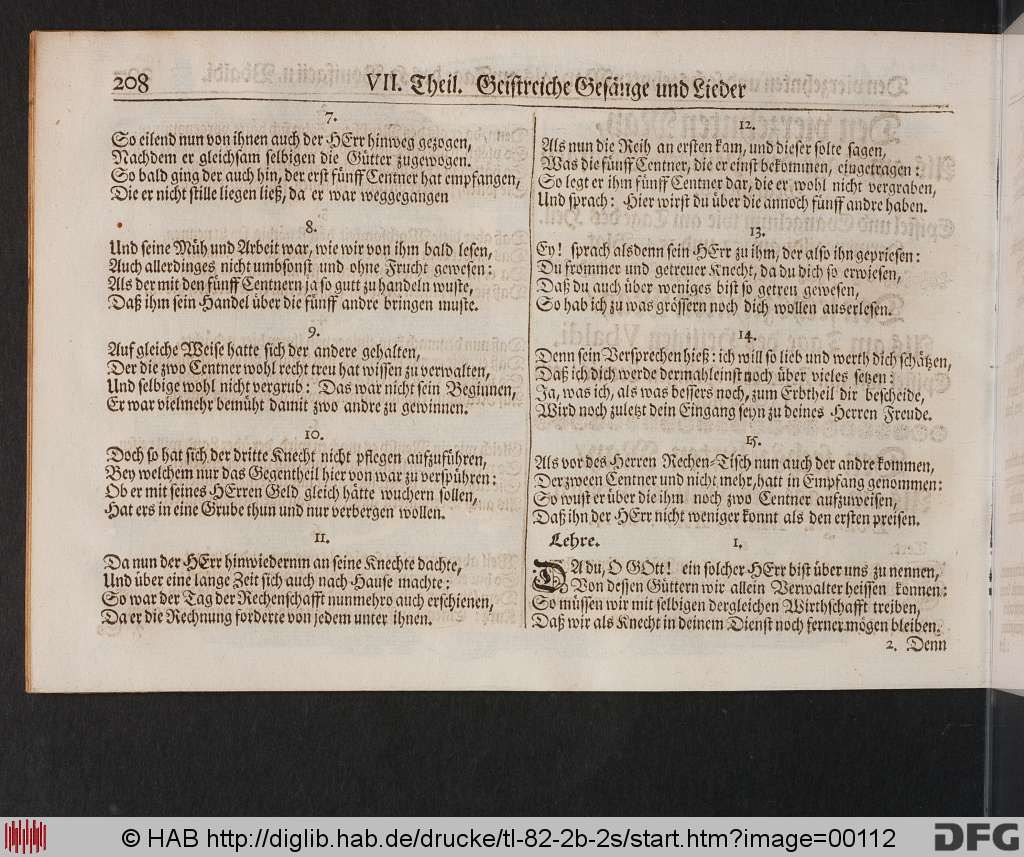 208
VII. Theil. Geistreiche Gesänge und Lieder
7.
So eilend nun von ihnen auch der HErr hinweg gezogen,
Nachdem er gleichsam selbigen die Gütter zugewogen.
So bald ging der auch hin, der erst fünff Centner hat empfangen,
Die er nicht stille liegen ließ, da er war weggegangen
8.
Und seine Müh und Arbeit war, wie wir von ihm bald lesen,
Auch allerdinges nicht umbsonst und ohne Frucht gewesen:
Als der mit den fünff Centnern ja so gutt zu handeln wuste,
Daß ihm sein Handel über die fünff andre bringen muste.
9.
Auf gleiche Weise hatte sich der andere gehalten,
Der die zwo Centner wohl recht treu hat wissen zu verwalten,
Und selbige wohl nicht vergrub: Das war nicht sein Beginnen,
Er war vielmehr bemüht damit zwo andre zu gewinnen.
10.
Doch so hat sich der dritte Knecht nicht pflegen aufzuführen,
Bey welchem nur das Gegentheil hier von war zu verspühren:
Ob er mit seines HErren Geld gleich hätte wuchern sollen,
Hat ers in eine Grube thun und nur verbergen wollen.
11.
Da nun der HErr hinwiedernm an seine Knechte dachte,
Und über eine lange Zeit sich auch nach Hause machte:
So war der Tag der Rechenschafft nunmehro auch erschienen,
Da er die Rechnung forderte von jedem unter ihnen.
12.
Als nun die Reih an ersten kam, und dieser solte sagen,
Was die fünff Centner, die er einst bekommen, eingetragen:
So legt er ihm fünff Centner dar, die er wohl nicht vergraben,
Und sprach: Hier wirst du über die annoch fünff andre haben.
13.
Ey! sprach alsdenn sein HErr zu ihm, der also ihn gepriesen:
Du frommer und getreuer Knecht, da du dich so erwiesen,
Daß du auch über weniges bist so getreu gewesen,
So hab ich zu was grössern noch dich wollen auserlesen.
14.
Denn sein Versprechen hieß: ich will so lieb und werth dich schätzen,
Daß ich dich werde dermahleinst noch über vieles setzen:
Ja, was ich, als was bessers noch, zum Erbtheil dir bescheide,
Wird noch zuletzt dein Eingang seyn zu deines Herren Freude.
15.
Als vor des Herren Rechen-Tisch nun auch der andre kommen,
Der zween Centner und nicht mehr, hatt in Empfang genommen:
So wust er über die ihm noch zwo Centner aufzuweisen,
Daß ihn der HErr nicht weniger konnt als den ersten preisen.
Lehre. 1.
DA du, O GOtt! ein solcher HErr bist über uns zu nennen,
Von dessen Güttern wir allein Verwalter heissen konnen:
So müssen wir mit selbigen dergleichen Wirthschafft treiben,
Daß wir als Knecht in deinem Dienst noch ferner mögen bleiben.
2. Denn
© HAB http://diglib.hab.de/drucke/tl-82-2b-2s/start.htm?image=00112
DFG